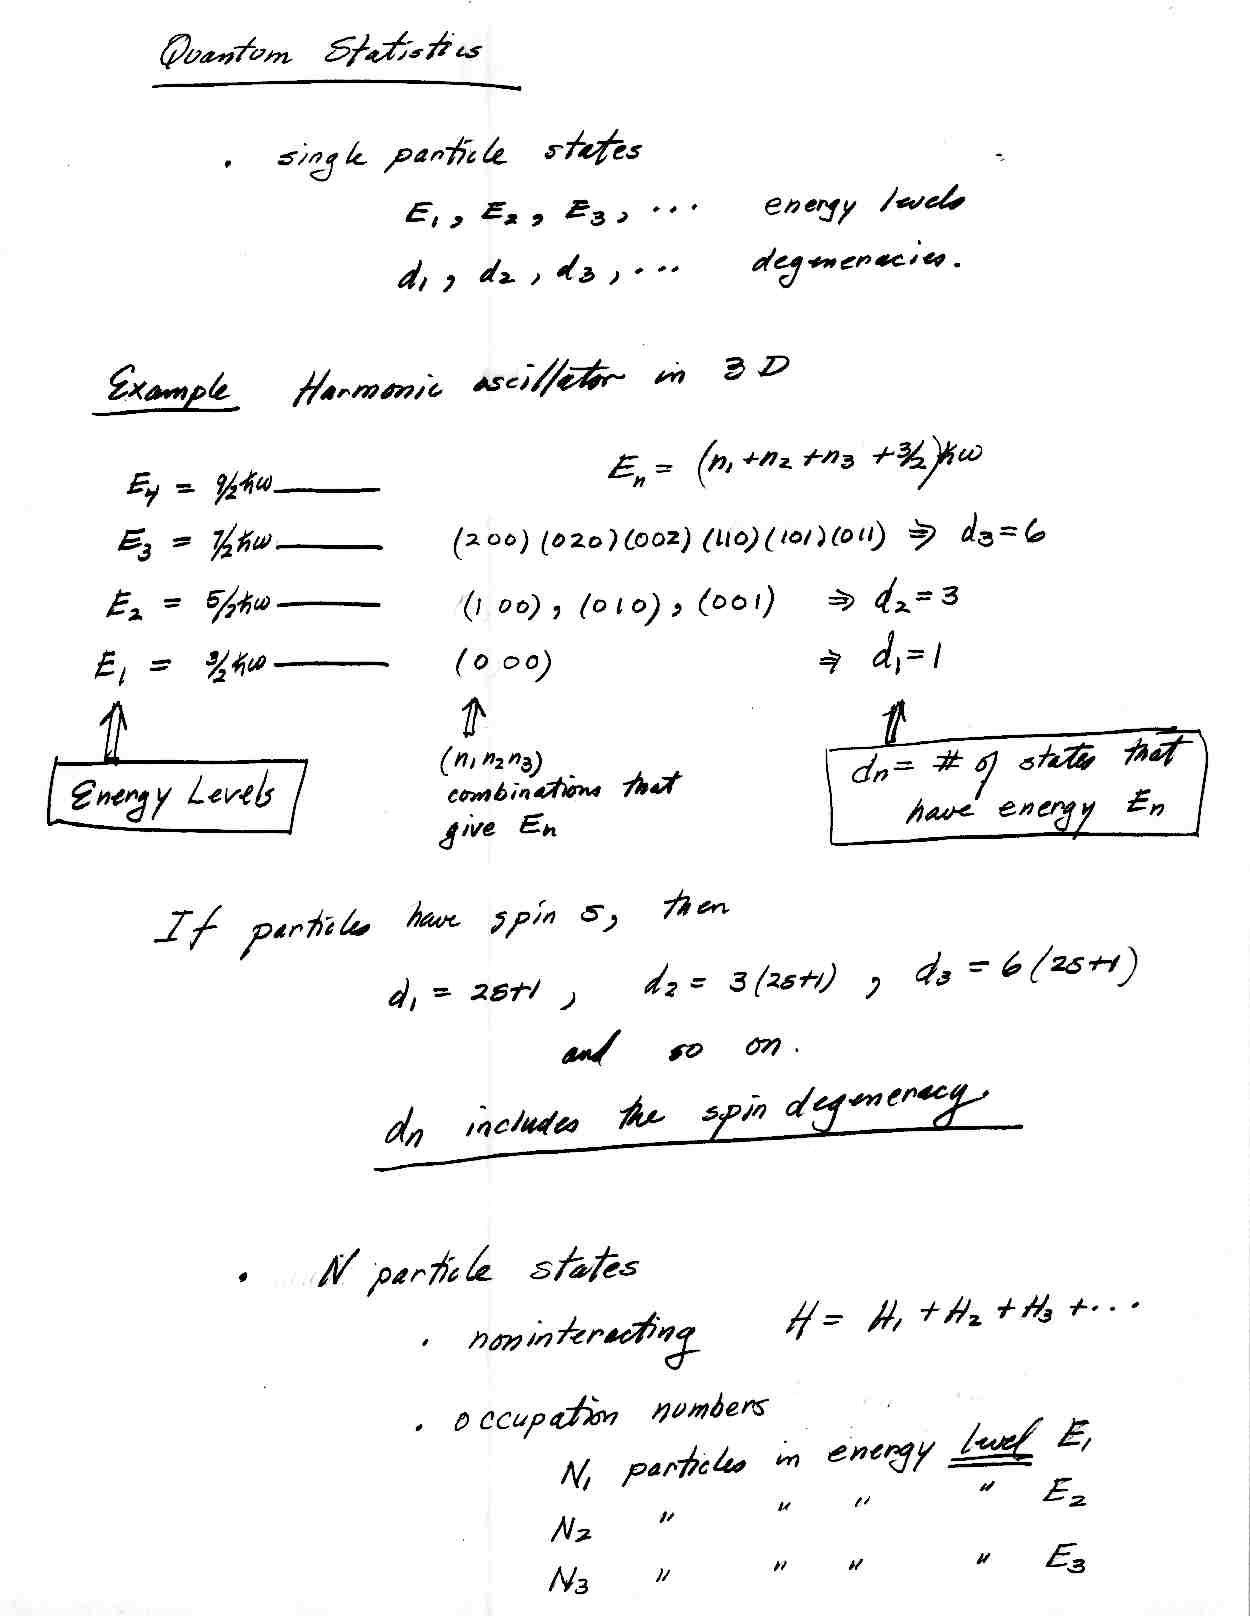 Quantum Statistics
· single particle states
E₁, E₂, E₃, ... energy levels
d₁, d₂, d₃, ... degeneracies.
Example Harmonic oscillator in 3D
Eₙ = (n₁+n₂+n₃+3/2)ħω
E₄ = 9/2ħω
E₃ = 7/2ħω (200)(020)(002)(110)(101)(011) ⇒ d₃=6
E₂ = 5/2ħω (100), (010), (001) ⇒ d₂=3
E₁ = 3/2ħω (000) ⇒ d₁=1
Energy Levels
(n₁n₂n₃)
combinations that
give Eₙ
dₙ = # of states that
have energy Eₙ
If particles have spin s, then
d₁ = 2s+1, d₂ = 3(2s+1), d₃ = 6(2s+1)
and so on.
dₙ includes the spin degeneracy.
· N particle states
· noninteracting H = H₁+H₂+H₃+...
· occupation numbers
N₁ particles in energy level E₁
N₂ " " " " E₂
N₃ " " " " E₃